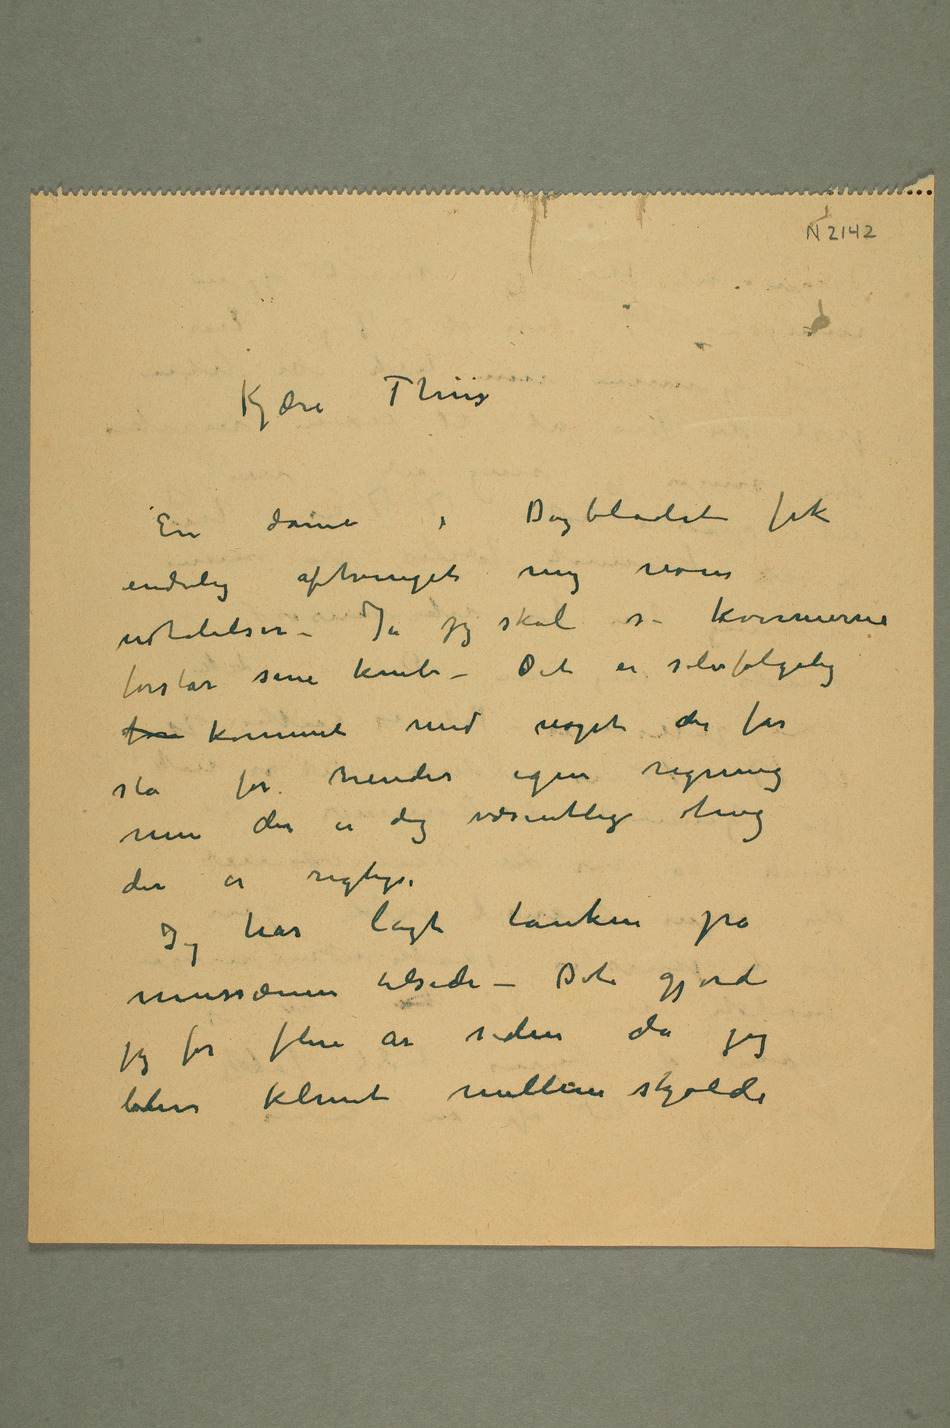 N 2142
Kjære Thiis
En dame i Dagbladet fik
endelig aftvunget mig nogen
udtalelser – Ja jeg skal si kvinnerne
forstår sine knib – Det er selvfølgelig
kommet med noget der får
stå for hendes egen regning
men der er dog væsentlige ting
der er rigtige.
Jeg har lagt tanken på
mussæum tilside – Det gjorde
jeg for flere år siden da jeg
blev klemt mellem skjolde